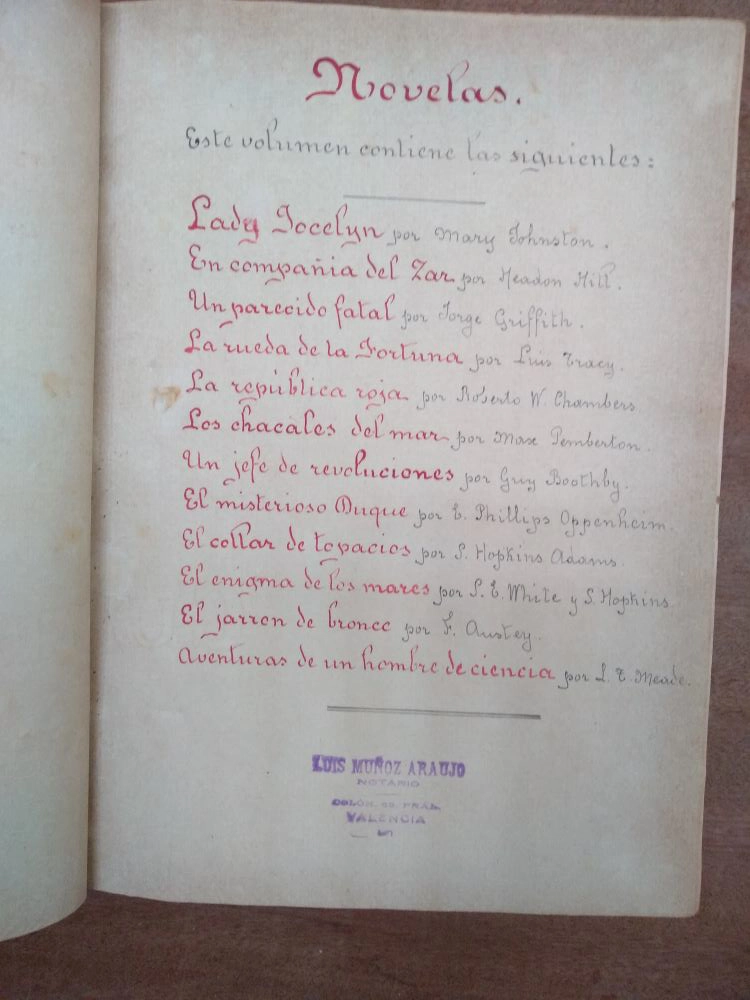 Novelas.
Este volumen contiene las siguientes:
Lady Jocelyn por Mary Johnston.
En compañia del Zar por Headon Hill.
Un parecido fatal por Jorge Griffith.
La rueda de la Fortuna por Luis Tracy.
La república roja por Roberto W. Chambers
Los chacales del mar por Max Pemberton.
Un jefe de revoluciones por Guy Boothby.
El misterioso Duque por E. Phillips Oppenheim.
El collar de topacios por S. Hopkins Adams.
El enigma de los mares por S. E. White y S. Hopkins
El jarron de bronce por F. Anstey.
Aventuras de un hombre de ciencia por L. T. Meade.
LUIS MUÑOZ ARAUJO
NOTARIO
COLÓN, PRAL.
VALENCIA